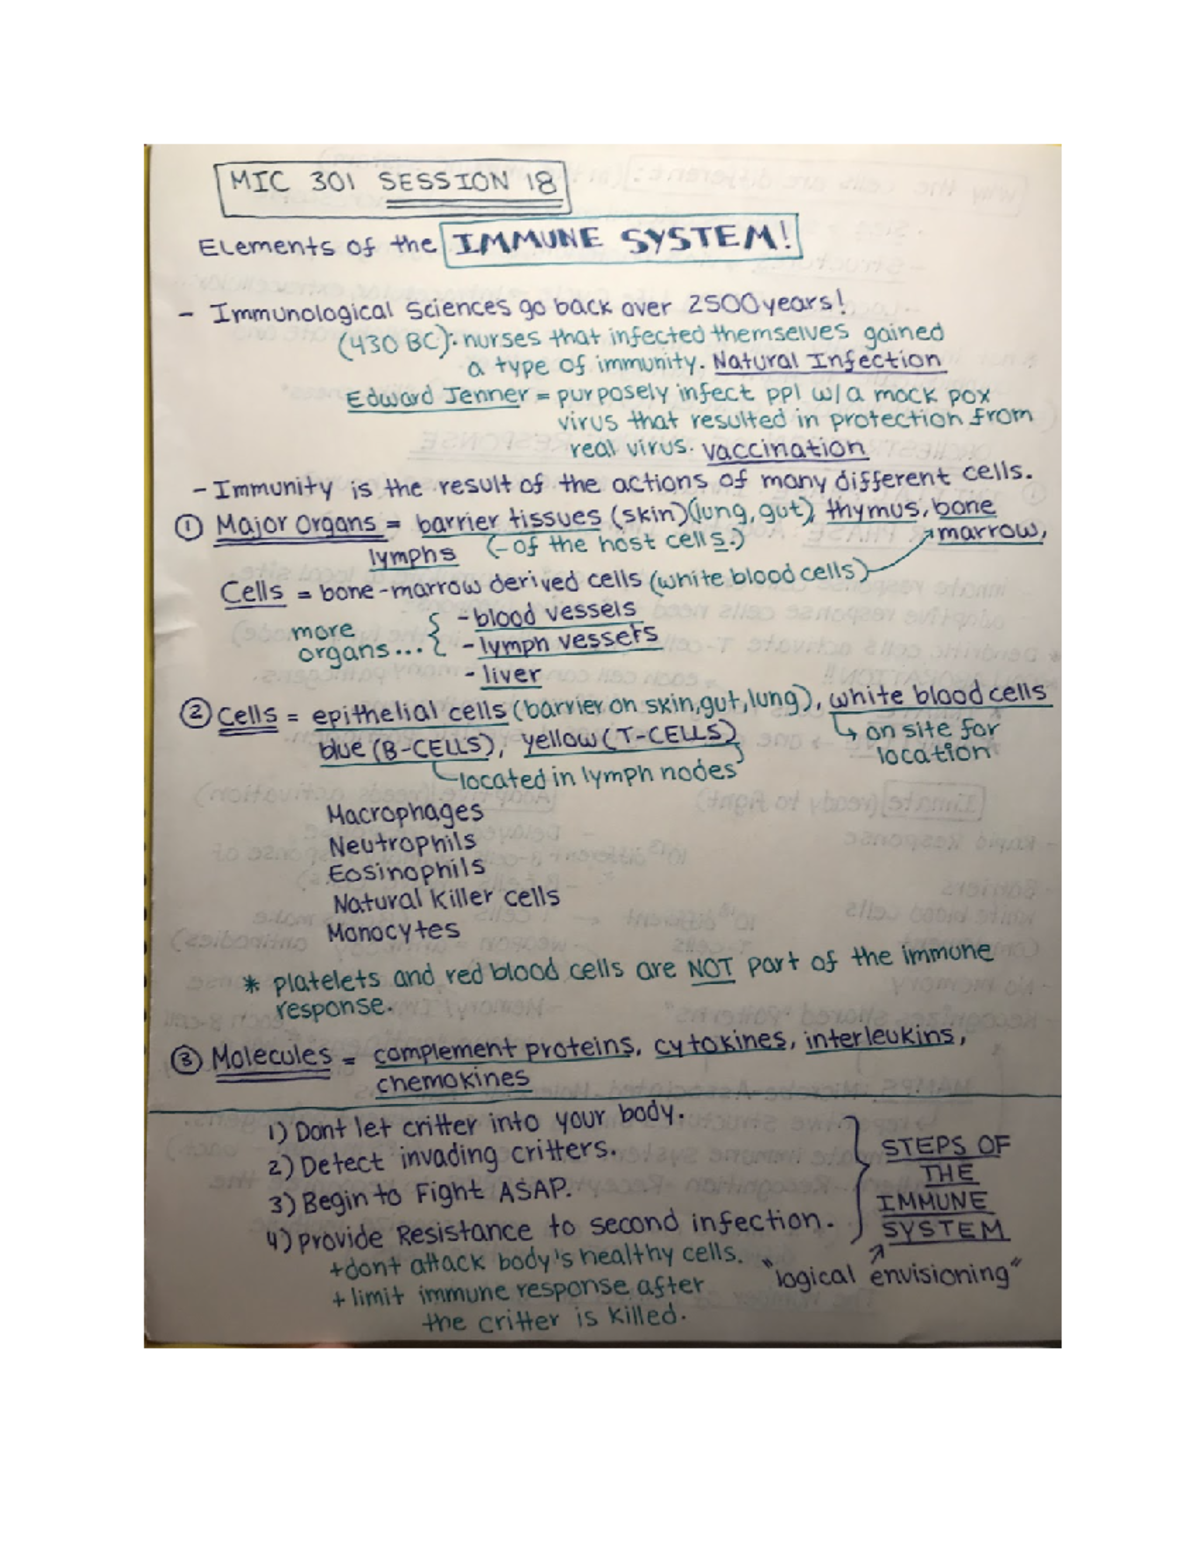 MIC 301 SESSION 18
Elements of the IMMUNE SYSTEM!
- Immunological Sciences go back over 2500 years!
(430 BC): nurses that infected themselves gained
a type of immunity. Natural Infection
Edward Jenner = purposely infect ppl w/a mock pox
virus that resulted in protection from
real virus. vaccination
- Immunity is the result of the actions of many different cells.
① Major Organs = barrier tissues (skin)(lung, gut), thymus, bone
lymphs (-of the host cells.) marrow,
Cells = bone-marrow derived cells (white blood cells)
more organs... { - blood vessels
- lymph vessels
- liver
② Cells = epithelial cells (barrier on skin, gut, lung), white blood cells
blue (B-CELLS), yellow (T-CELLS) ↳ on site for
location
located in lymph nodes
Macrophages
Neutrophils
Eosinophils
Natural Killer cells
Monocytes
* platelets and red blood cells are NOT part of the immune
response.
③ Molecules = complement proteins, cytokines, interleukins,
chemokines
1) Dont let critter into your body.
2) Detect invading critters.
3) Begin to Fight ASAP.
4) Provide Resistance to second infection.
+dont attack body's healthy cells.
+ limit immune response after
the critter is killed.
STEPS OF
THE
IMMUNE
SYSTEM
"logical envisioning"